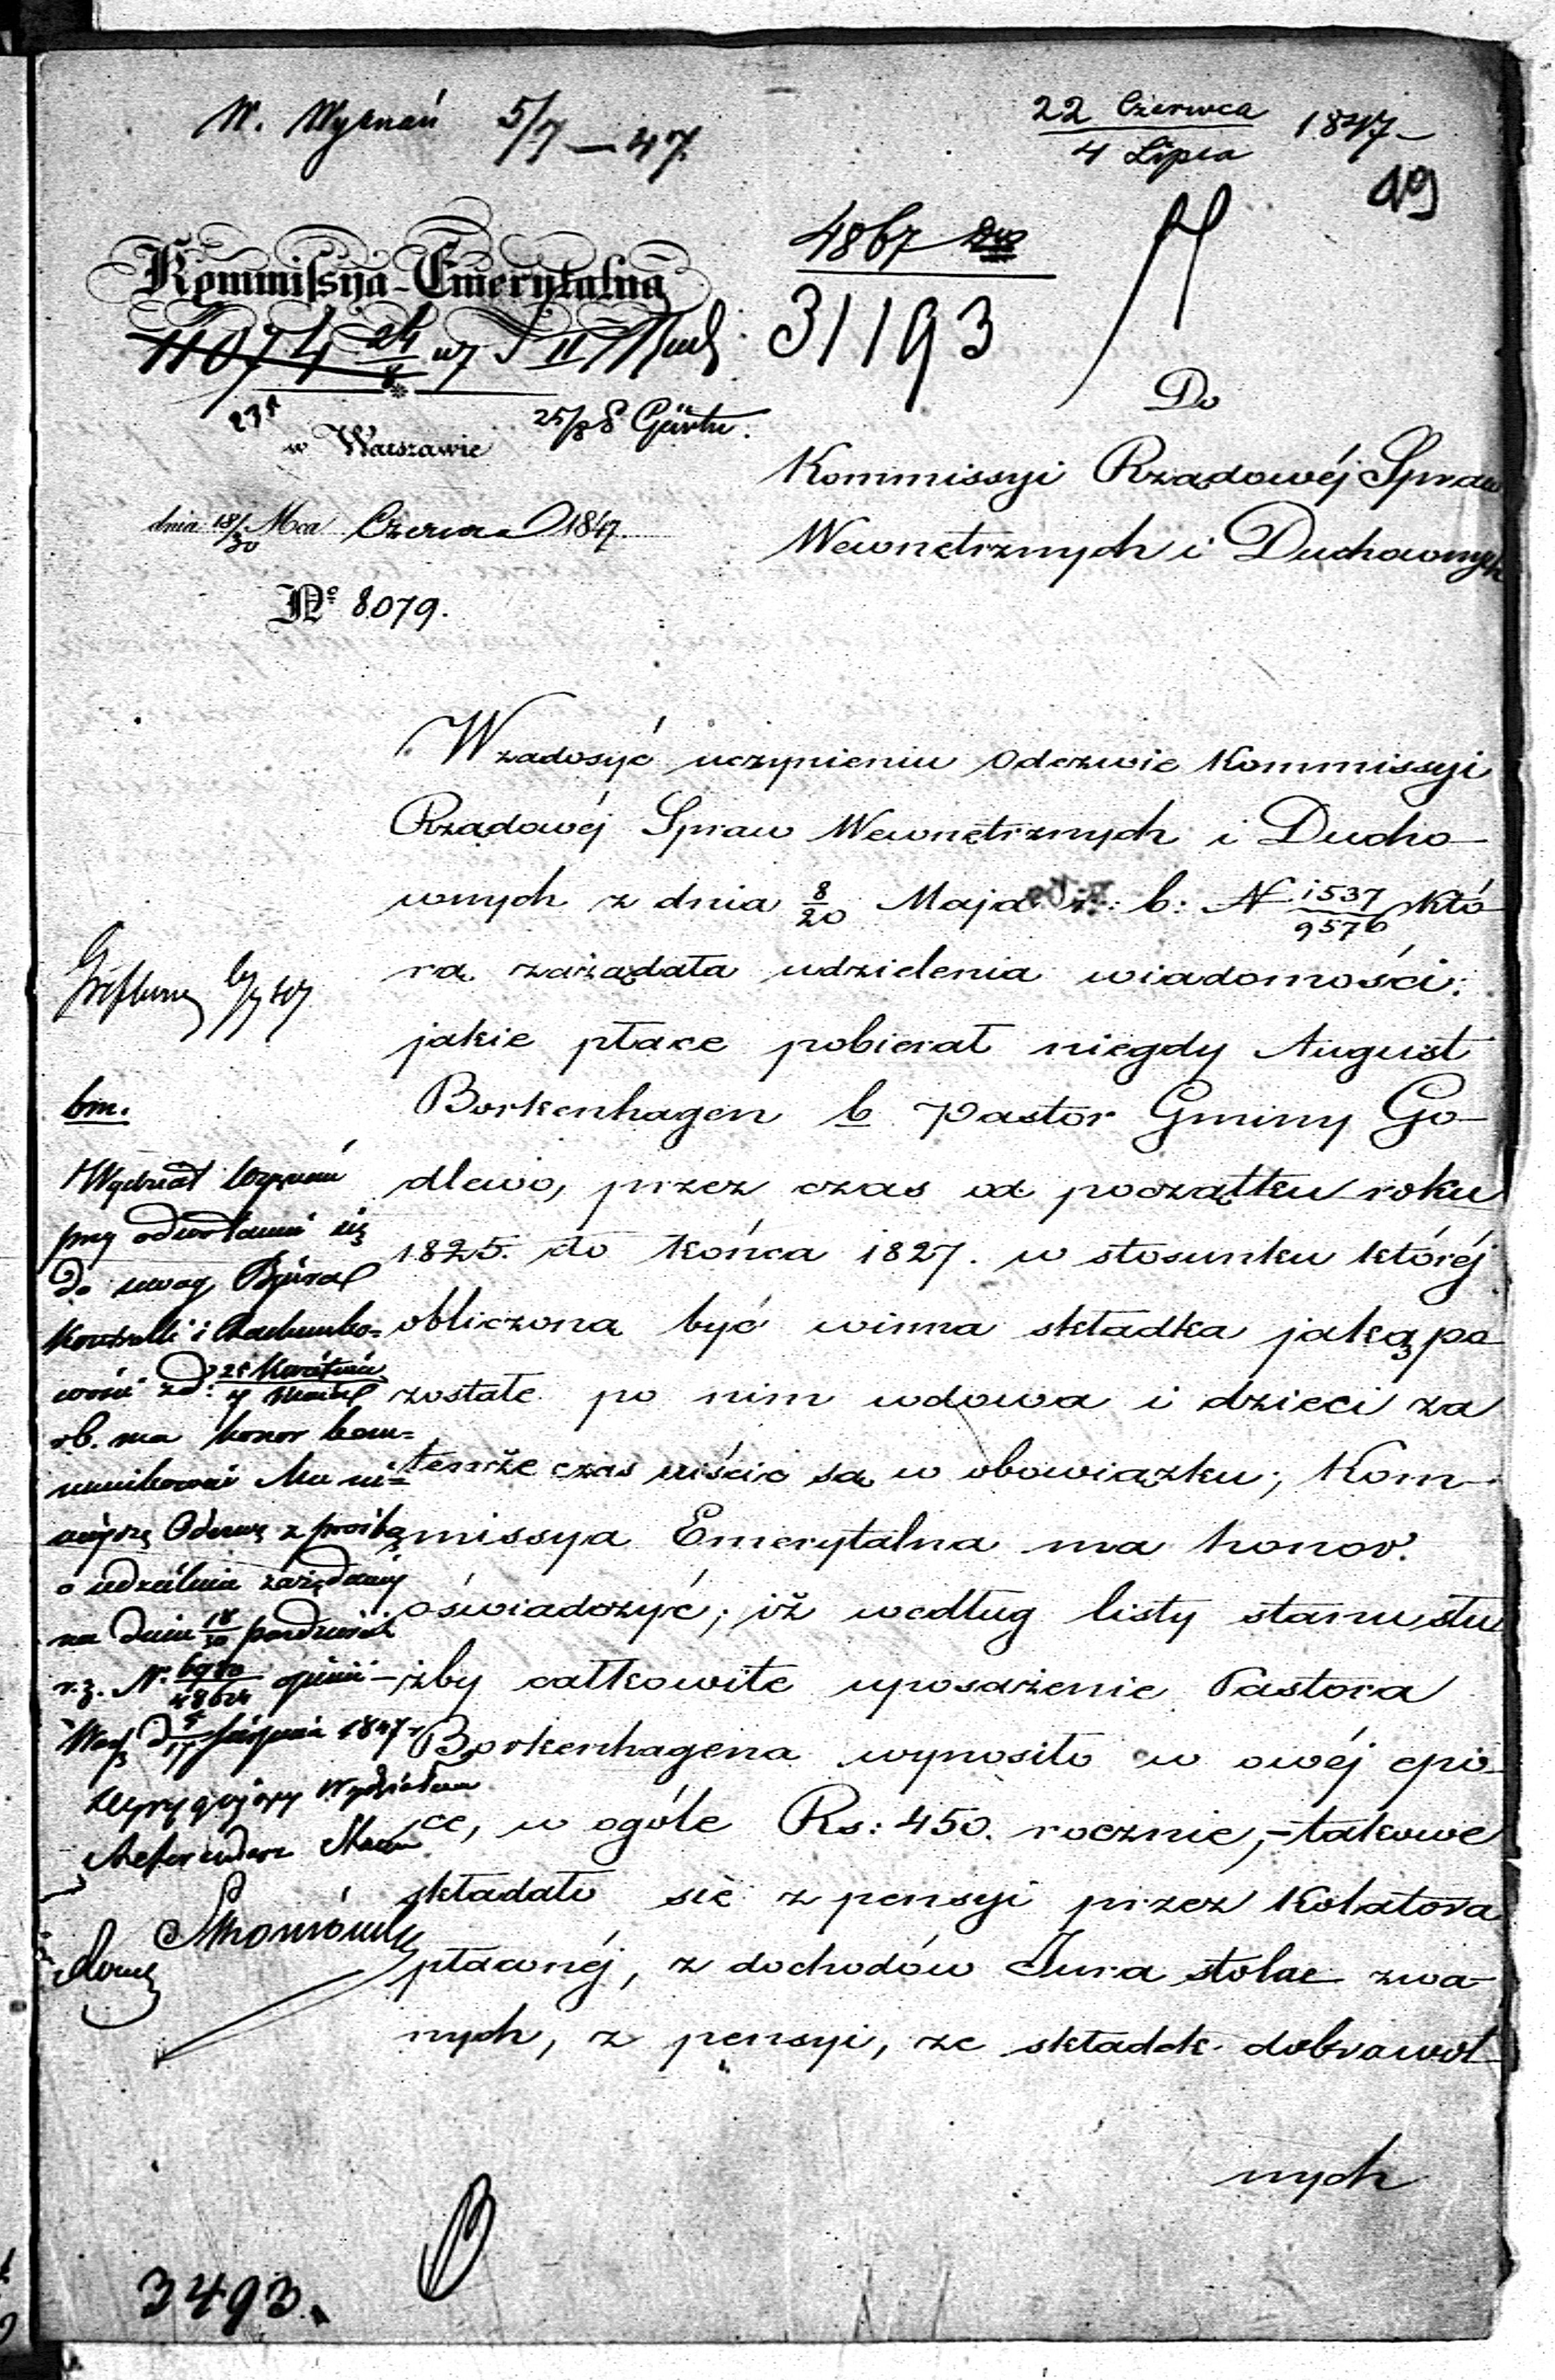 W. Wyznań 5/7 – 47.
22 Czerwca
4 Lipca 1847
49
4867
31193
Kommissya-Emerytalna
11074 24/8 47
25/8
w Warszawie
dnia 18/30 Mca Czerwca 1847.
Nº 8079.
Do
Kommissyi Rządowéj Spraw
Wewnętrznych i Duchownych
Wzadosyć uczynieniu Odezwie Kommissyi
Rządowéj Spraw Wewnętrznych i Ducho-
wnych z dnia 8/20 Maja r: b: N 1537/9576 któ-
ra zażądała udzielenia wiadomości:
jakie płace pobierał niegdy August
Borkenhagen b Pastor Gminy Go-
dlewo, przez czas od początku roku
1825. do końca 1827. w stosunku któréj
obliczona być winna składka jaką po-
zostałe po nim wdowa i dzieci za
tenże czas uiścić są w obowiązku; Kom-
missya Emerytalna ma honor
oświadczyć; iż według listy stanu słu
żby całkowite uposażenie Pastora
Borkenhagena wynosiło w owéj epo-
ce, w ogóle Rs: 450. rocznie,- takowe
składało się z pensyi przez Kolatora
płaconéj, z dochodów Jura stolae zwa-
nych, z pensyi, ze składek dobrowol-
nych
bm.
Wydział Wyznań
przy odwołaniu się
do uwag Bióra
Kontrolli i Rachunko-
wości z d: 25 Kwietnia
rb. ma honor kom-
munikować Mu ni-
niejszą Odezwę z prośbą
o udzielenie zażądanéj
na dniu 18/30 paździer
r.z. Nr opinii
Warsz d 5/17 sierpnia 1847 r
Dyrygujący Wydziałem
Referendarz Stanu
3493.